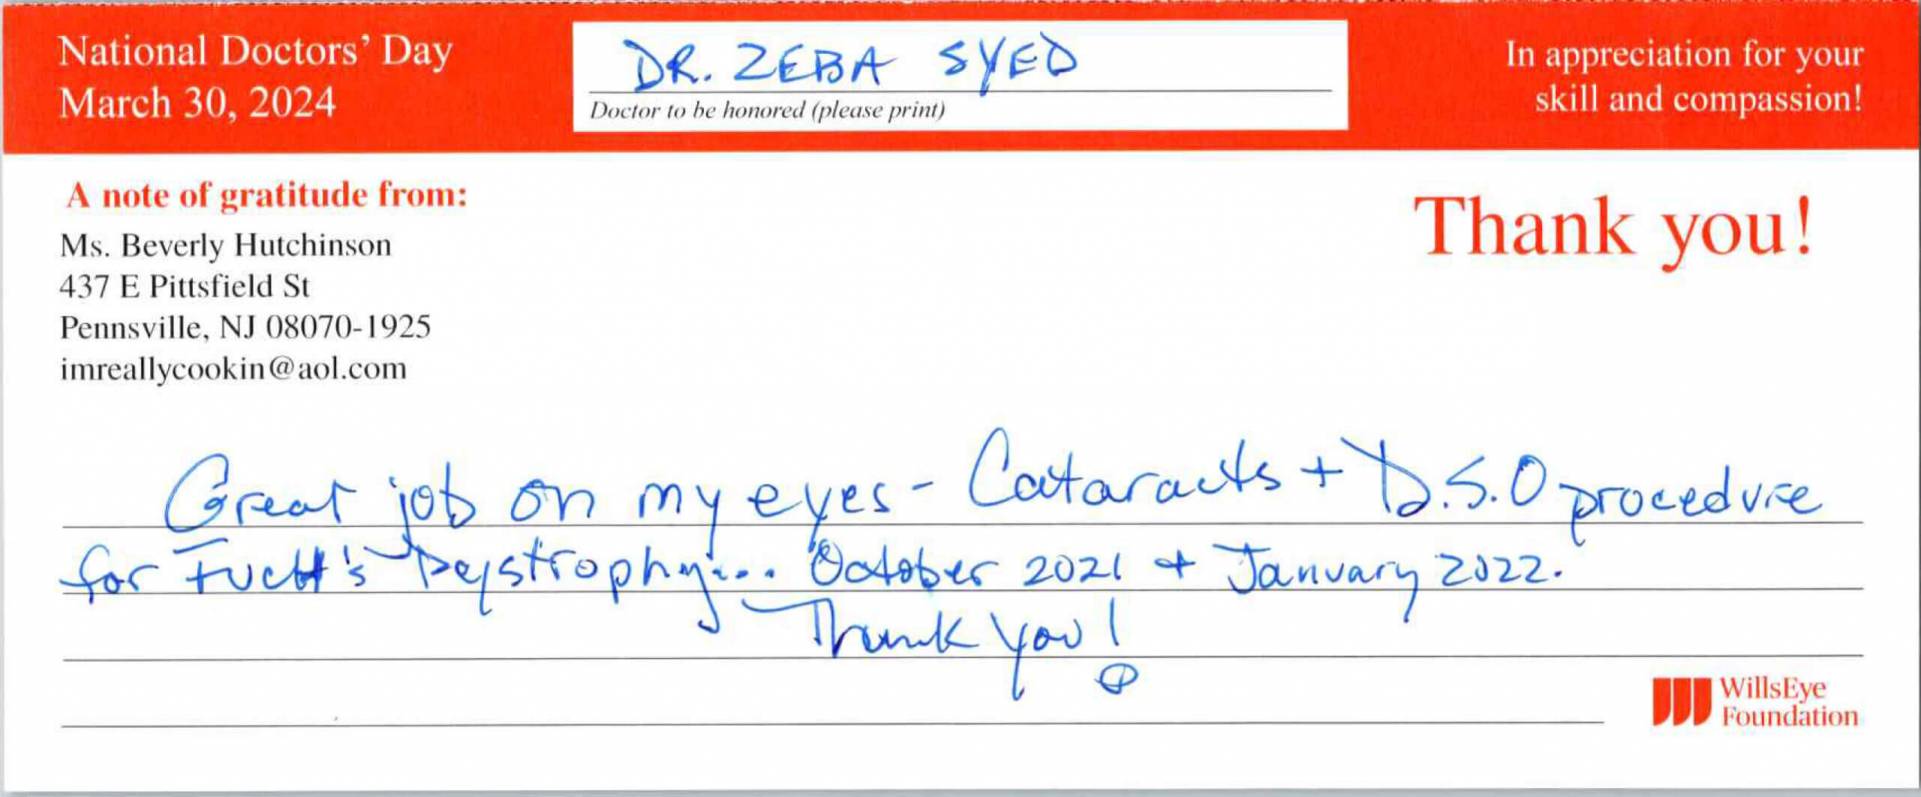 National Doctors' Day
March 30, 2024
DR. ZEBA SYED
Doctor to be honored (please print)
In appreciation for your
skill and compassion!
A note of gratitude from:
Ms. Beverly Hutchinson
437 E Pittsfield St
Pennsville, NJ 08070-1925
imreallycookin@aol.com
Thank you!
Great job on my eyes - Cataracts + D.S.O procedure
for Fucht's Dystrophy... October 2021 + January 2022.
Thank you!
WillsEye
Foundation